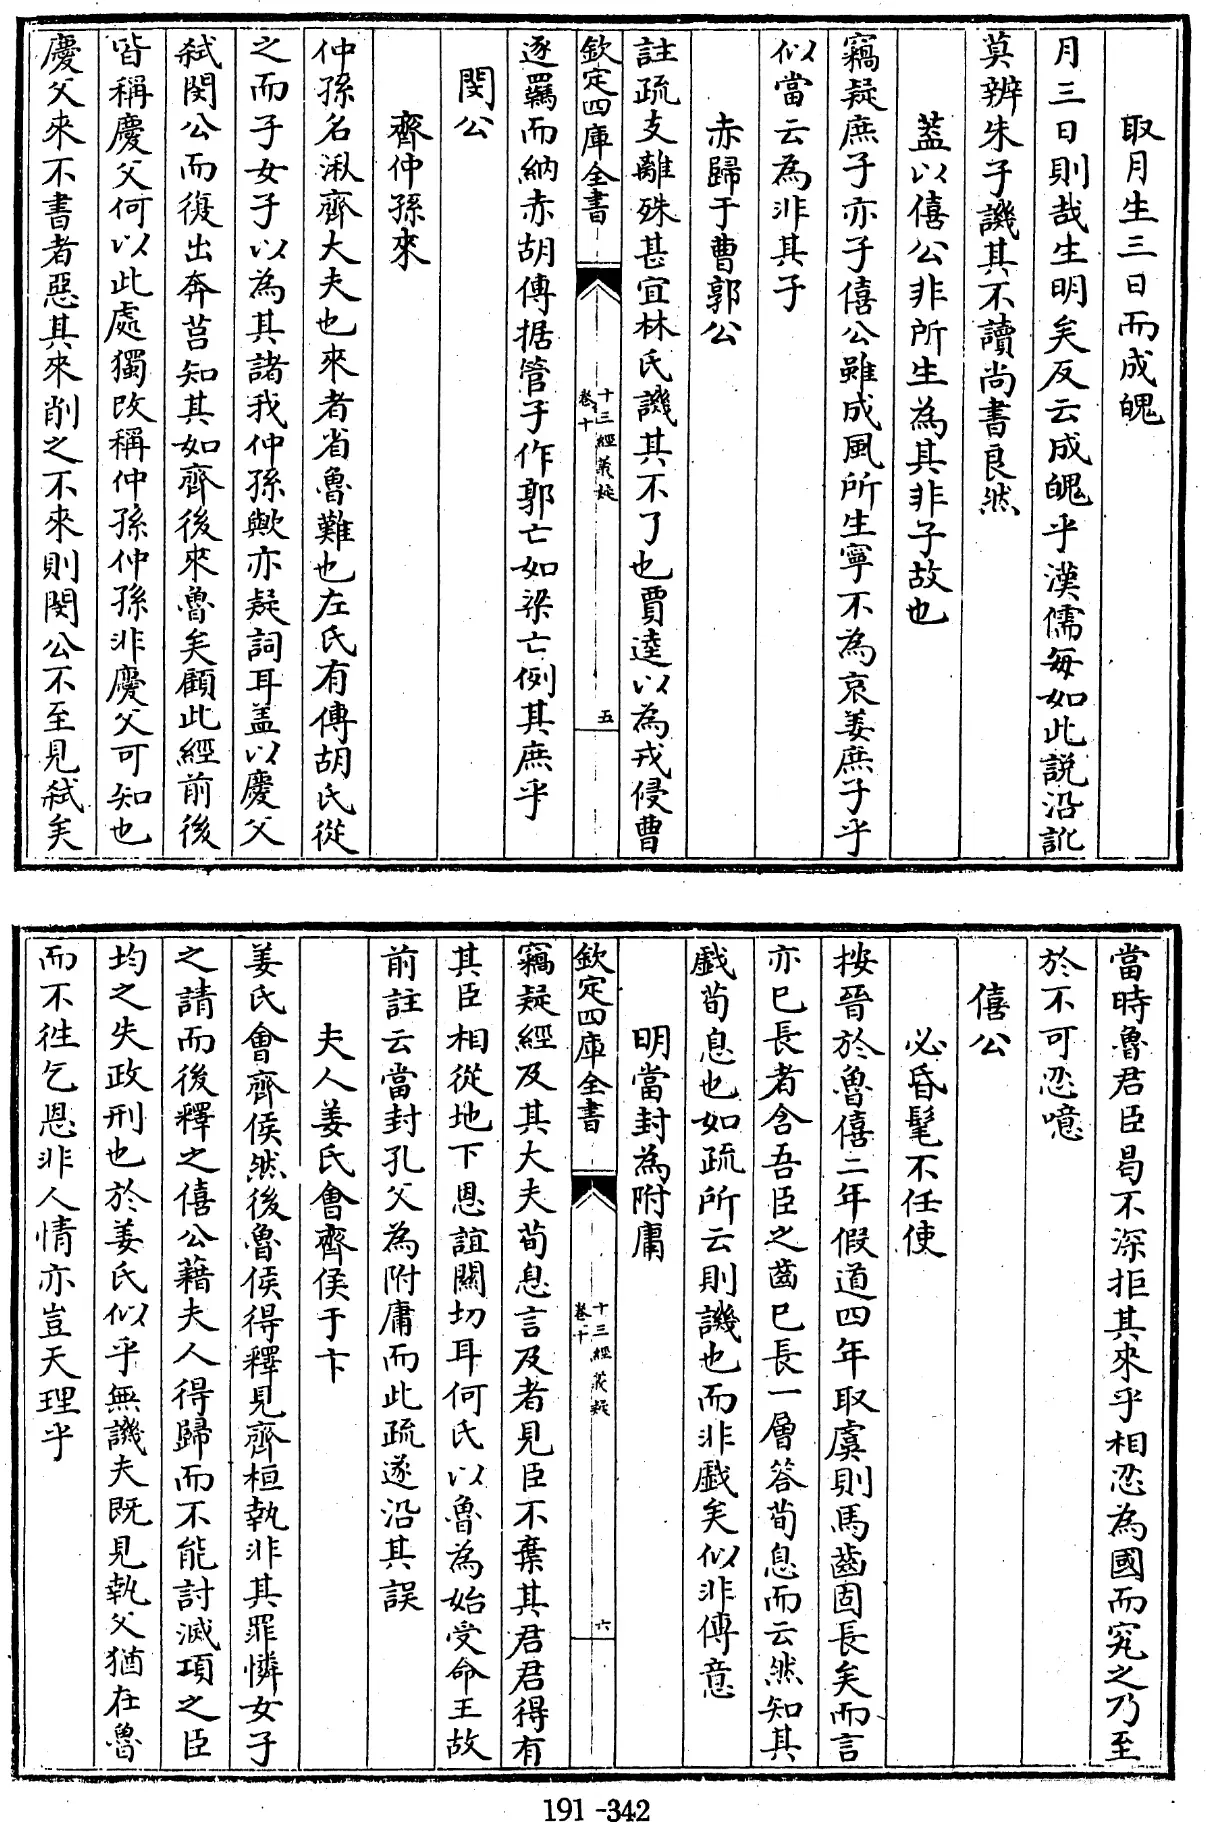 取月生三日而成魄
月三日則哉生明矣反云成魄乎漢儒每如此説沿訛
莫辨朱子譏其不讀尚書良然
蓋以僖公非所生為其非子故也
竊疑庶子亦子僖公雖成風所生寧不為哀姜庶子乎
似當云為非其子
赤歸于曹郭公
註疏支離殊甚宜林氏譏其不了也賈逵以為戎侵曹
欽定四庫全書
十三經義疑
卷十
五
逐羈而納赤胡傳据管子作郭亡如梁亡例其庶乎
閔公
齊仲孫來
仲孫名湫齊大夫也來者省魯難也左氏有傳胡氏從
之而子女子以為其諸我仲孫歟亦疑詞耳蓋以慶父
弑閔公而復出奔莒知其如齊後來魯矣顧此經前後
皆稱慶父何以此處獨改稱仲孫仲孫非慶父可知也
慶父來不書者惡其來削之不來則閔公不至見弑矣
當時魯君臣曷不深拒其來乎相忍為國而究之乃至
於不可忍噫
僖公
必昏髦不任使
按晉於魯僖二年假道四年取虞則馬齒固長矣而言
亦已長者含吾臣之齒已長一層答荀息而云然知其
戲荀息也如疏所云則譏也而非戲矣似非傳意
明當封為附庸
欽定四庫全書
十三經義疑
卷十
六
竊疑經及其大夫荀息言及者見臣不棄其君君得有
其臣相從地下恩誼關切耳何氏以魯為始受命王故
前註云當封孔父為附庸而此疏遂沿其誤
夫人姜氏會齊侯于卞
姜氏會齊侯然後魯侯得釋見齊桓執非其罪憐女子
之請而後釋之僖公藉夫人得歸而不能討滅項之臣
均之失政刑也於姜氏似乎無譏夫既見執父猶在魯
而不往乞恩非人情亦豈天理乎
191-342